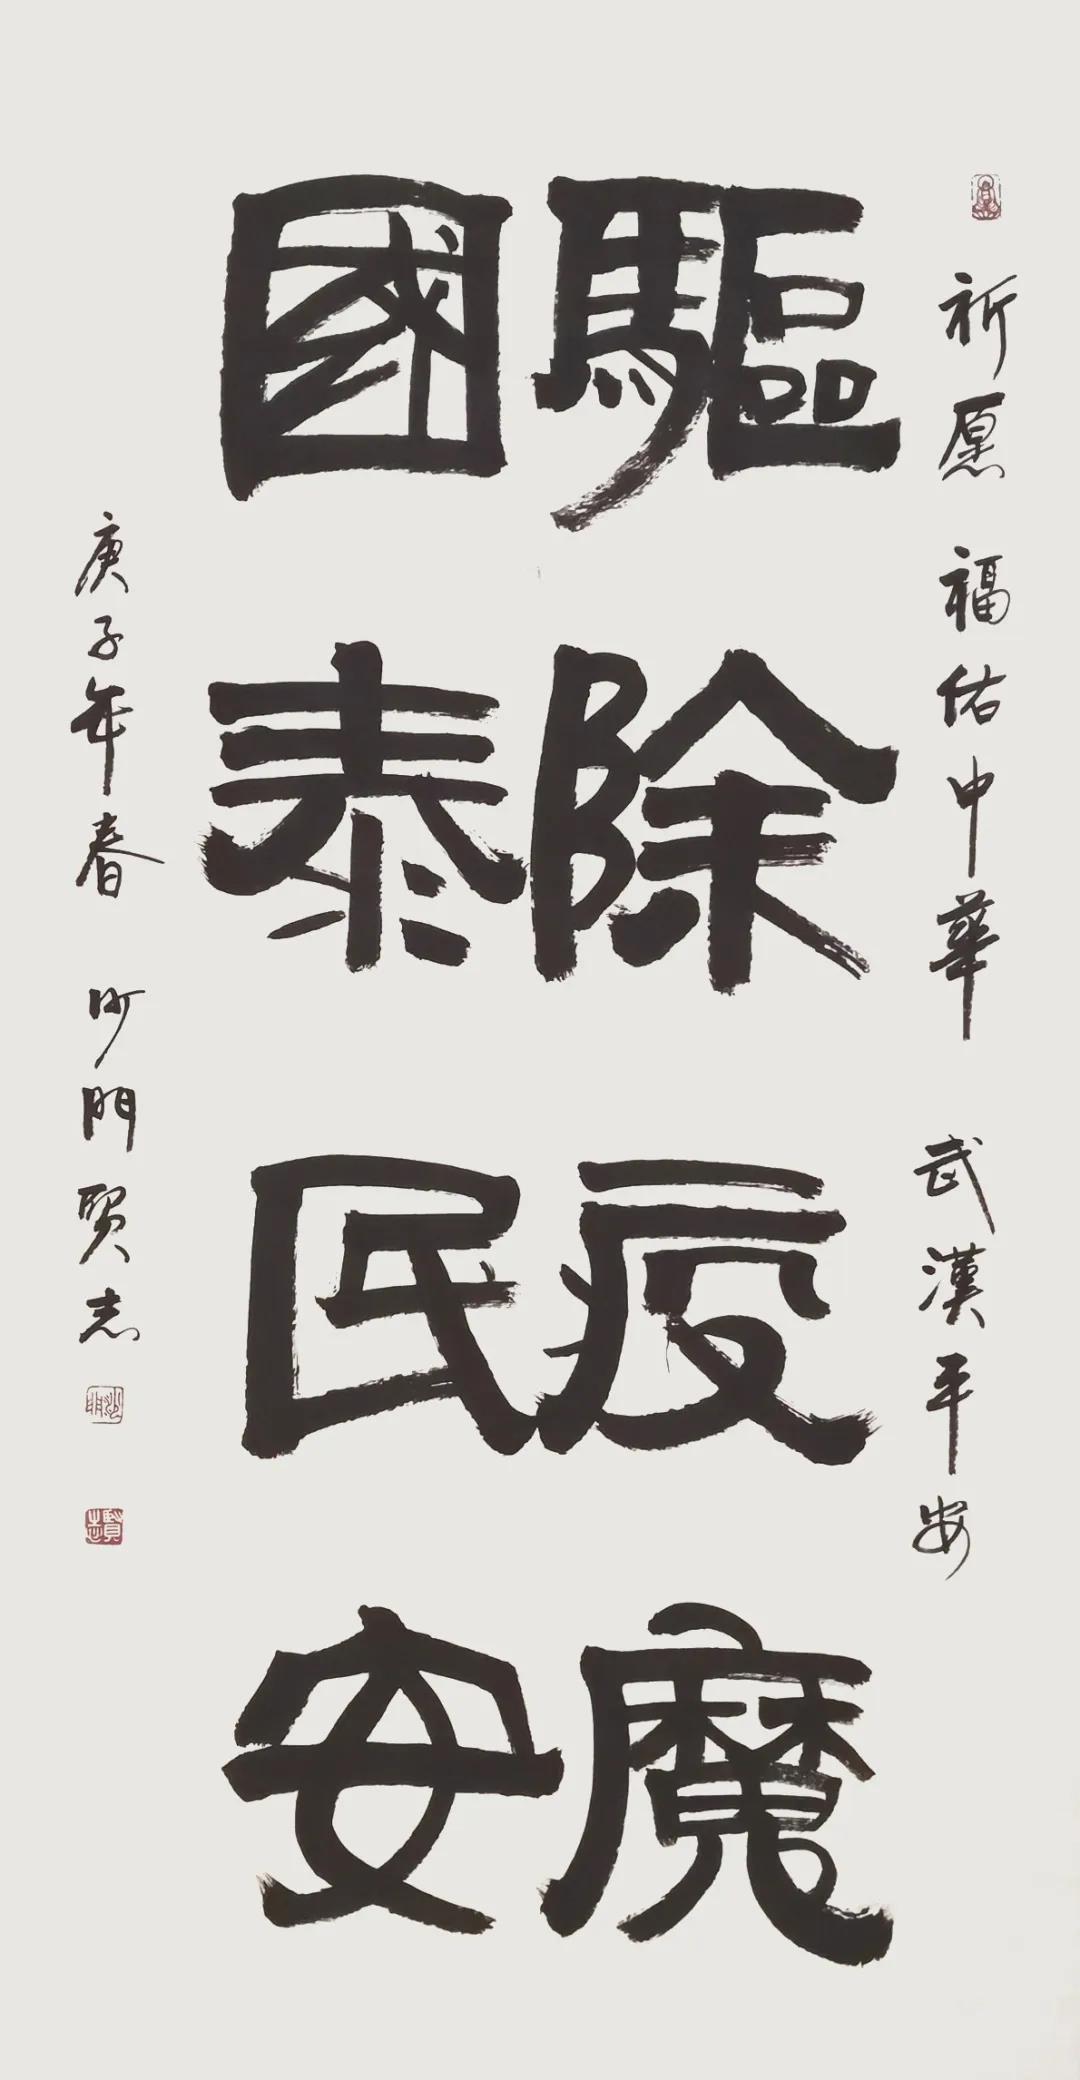 祈愿 福佑中華 武漢平安
驅除疫魔
國泰民安
庚子年春 沙門贤志
賢志